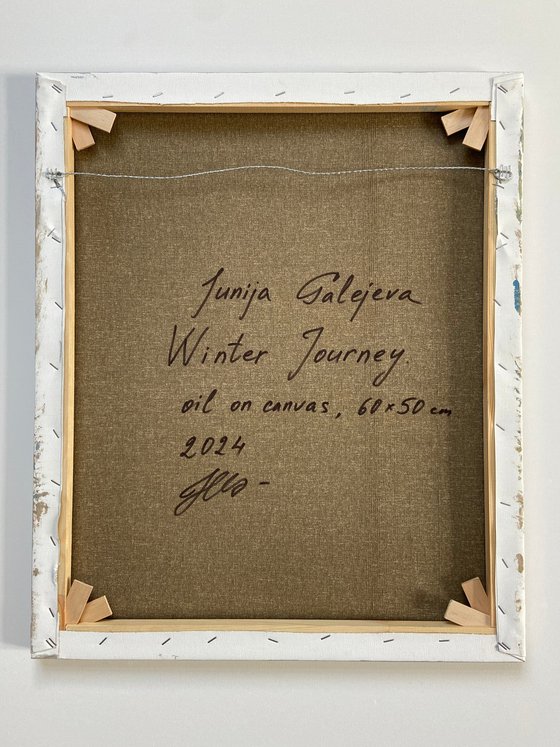 Junija Galejeva
Winter Journey.
oil on canvas, 60x50 cm
2024